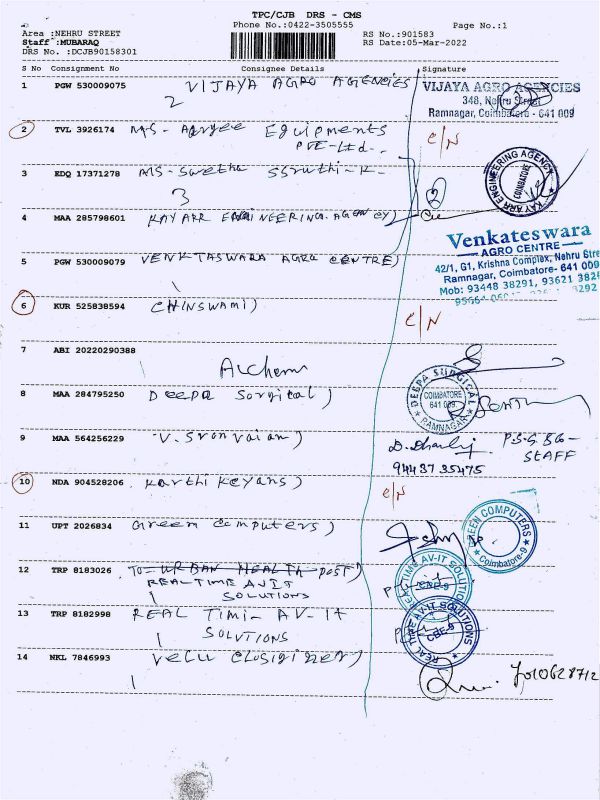 TPC/CJB DRS - CMS
Phone No.:0422-3505555
Page No.:1
Area :NEHRU STREET
Staff :MUBARAQ
DRS No. :DCJB90158301
RS No.:901583
RS Date:05-Mar-2022
S No Consignment No Consignee Details Signature
1 PGW 530009075 VIJAYA AGRO AGENCIES
2
VIJAYA AGRO AGENCIES
348, Nehru Street
Ramnagar, Coimbatore - 641 009
2 TVL 3926174 Equipments
PVE-Ltd-
C/N
3 EDQ 17371278 MS-Swetha SSruthi-K-
3
KAY ARR ENGINEERING AGENCY
COIMBATORE
4 MAA 285798601 KAYARR ENGINEERING AGENCY)
5 PGW 530009079 VENKTASWARA AGRO CENTRE)
Venkateswara
AGRO CENTRE
42/1, G1, Krishna Complex, Nehru Stre
Ramnagar, Coimbatore- 641 009
Mob: 93448 38291, 93621 3829
6 KUR 525838594 CHINSWAMI)
C/N
7 ABI 20220290388
Alchem
8 MAA 284795250 Deepa Sorgital)
DEEPA SURGICAL
COIMBATORE
641 009.
RAMNAGAR
9 MAA 564256229 V.
P.S.G BG-
STAFF
94437 35475
10 NDA 904528206 Karthikeyans)
C/N
11 UPT 2026834 Green Computers)
GREEN COMPUTERS
Coimbatore-9
12 TRP 8183026 To-URBAN HEALTH post)
REALTIME AVIT
1 SOLUTIONS
REALTIME AV-IT SOLUTIONS
CBE-9
13 TRP 8182998 REAL TIMI- AV-It
1 SOLUTIONS
REAL TIME AV-IT SOLUTIONS
CBE-9
14 NKL 7846993 Velu
1
7010628712